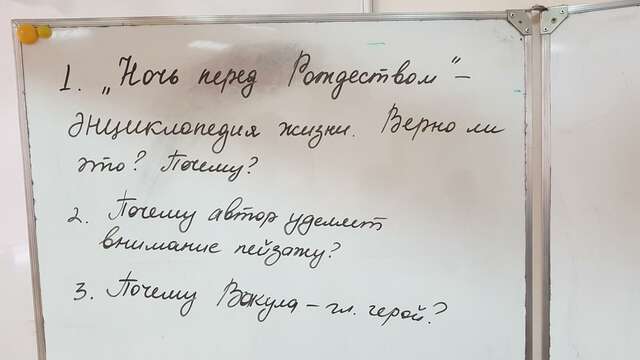 1. „Ночь перед Рождеством" –
энциклопедия жизни. Верно ли
это? Почему?
2. Почему автор уделяет
внимание пейзажу?
3. Почему Вакула – гл. герой?